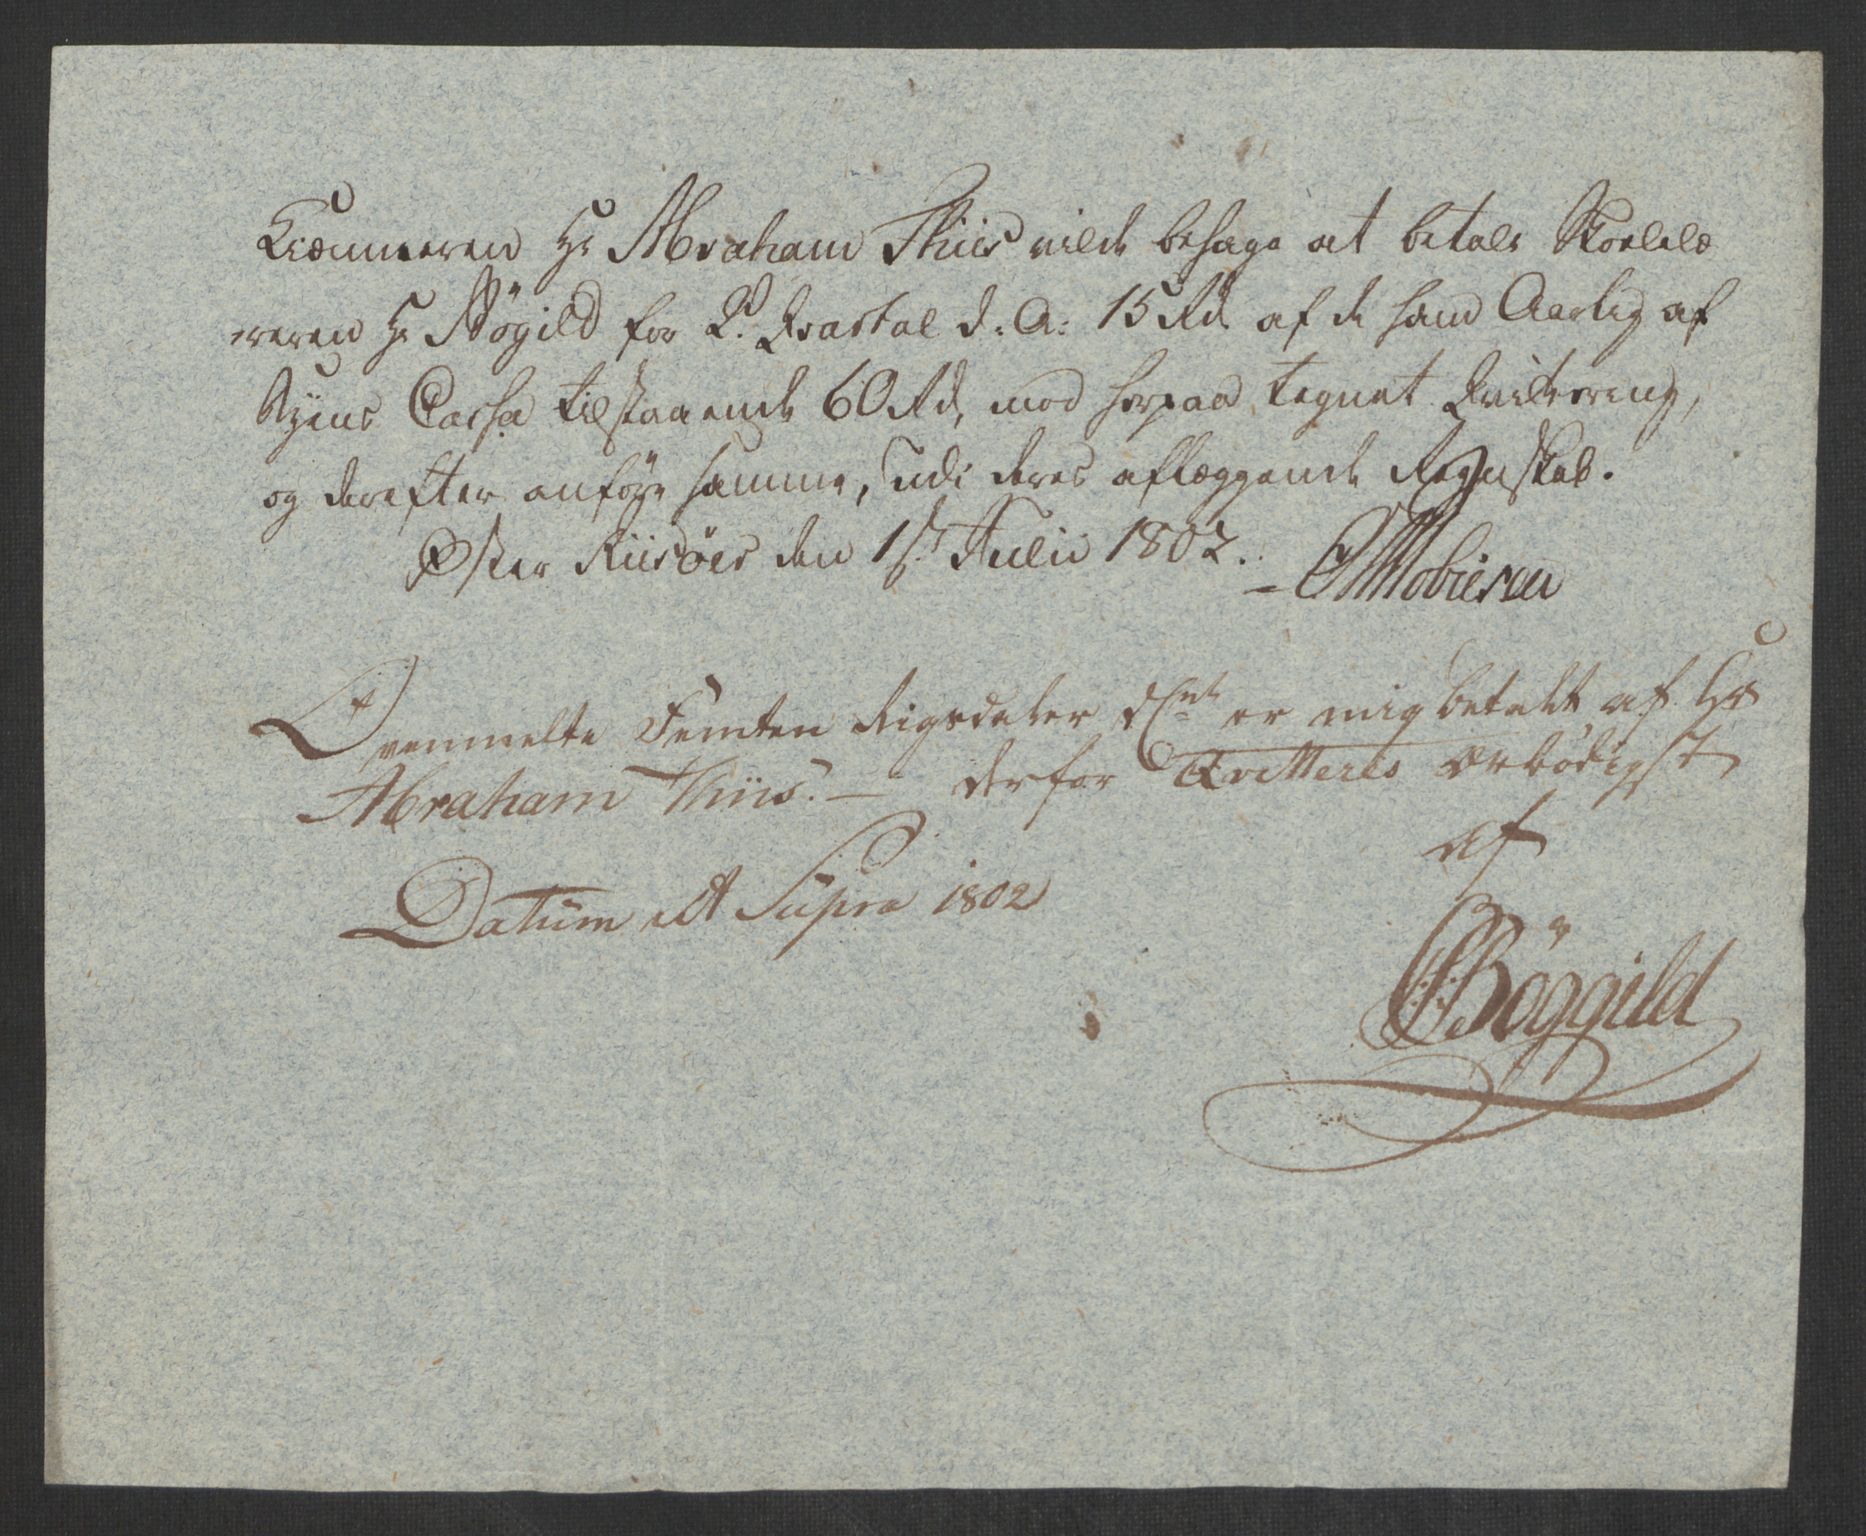 Kiæmneren Hr Abraham Thiis vilde behage at betale Skolelæ
reren Hr Bögild for 2. Qvartal d: A: 15 Rd af de ham Aarlig af
Byens Cassa tilstaaende 60 Rd, mod herpaa tegnet Qvittering,
og derefter anföre samme, udi deres aflæggende Regnskab.
Øster Riisöer den 1st Julii 1802.
Ovenmelte Femten Rigsdaler er mig betalt af Hr
Abraham Thiis. — derfor Qvitteres ærbödigst
af
Datum ut Supra 1802
Böggild